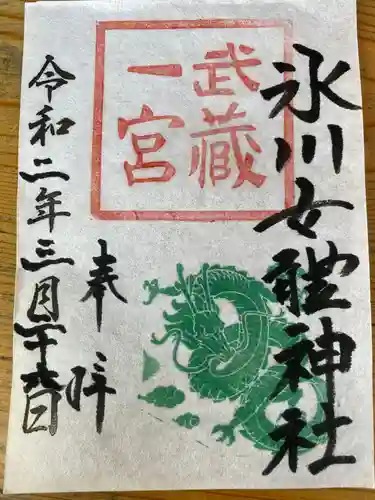 氷川女體神社
武蔵
一宮
奉拝
令和二年三月二十九日